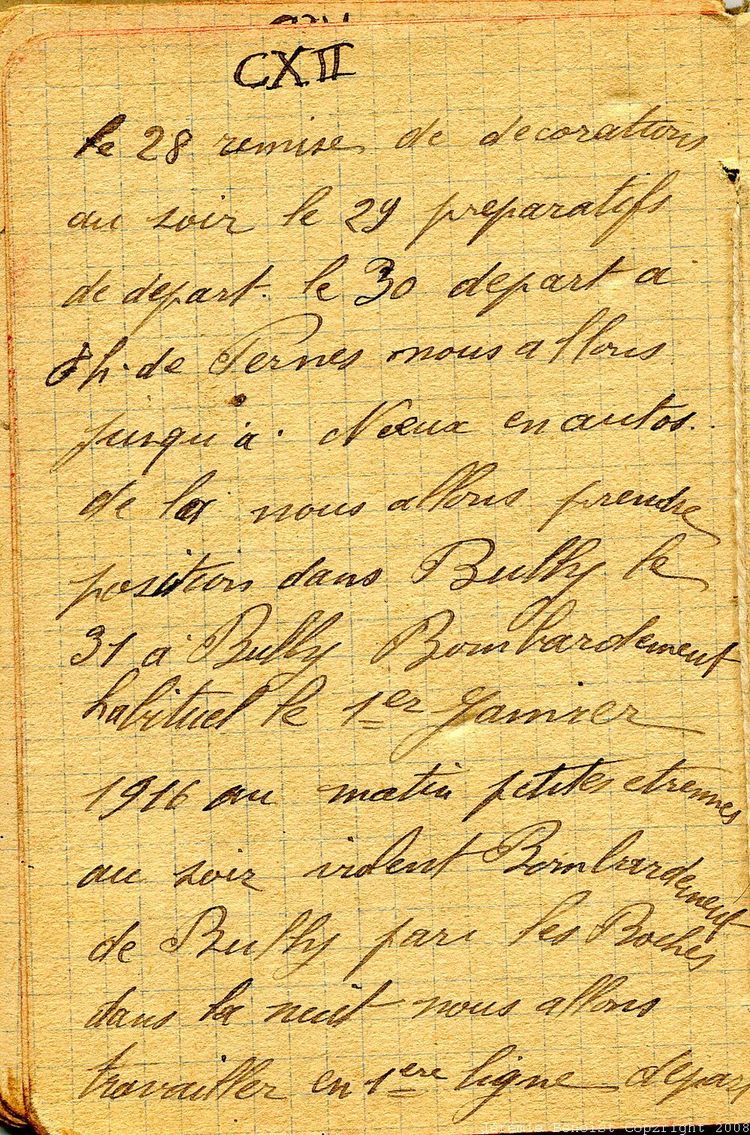 CXII
le 28 remise de decorations
au soir le 29 preparatifs
de départ. le 30 depart a
h. de Pernes nous allons
jusqu'à Nœux en autos.
de la nous allons prendre
position dans Bully le
31 à Bully Bombardement
habituel le 1er Janvier
1916 au matin petites etrennes
au soir violent Bombardement
de Bully par les Boches
dans la nuit nous allons
travailler en 1ere ligne depart
Jérémie Benoist Copyright 2008